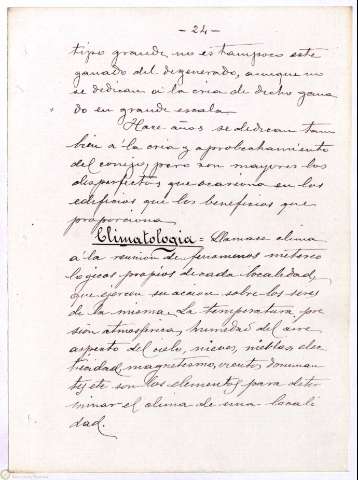 - 24 -
tipo grande no es tampoco este
ganado del degenerado, aunque no
se dedican á la cria de dicho gana
do en grande escala
Hace años se dedican tam
bien á la cria y aprobechamiento
del conejo, pero son mayores los
desperfectos que ocasiona en los
edificios que los beneficios que
proporciona
Climatologia = Llamase clima
á la reunion de fenomenos meteoro
logicos propios de cada localidad,
que ejercen su accion sobre los seres
de la misma. La temperatura, pre
sión atmosferica, humedad del aire
aspecto del cielo, nieves, nieblas, elec
tricidad, magnetismo, vientos dominan
tes, etc son los elementos para deter
minar el clima de una locali
dad.